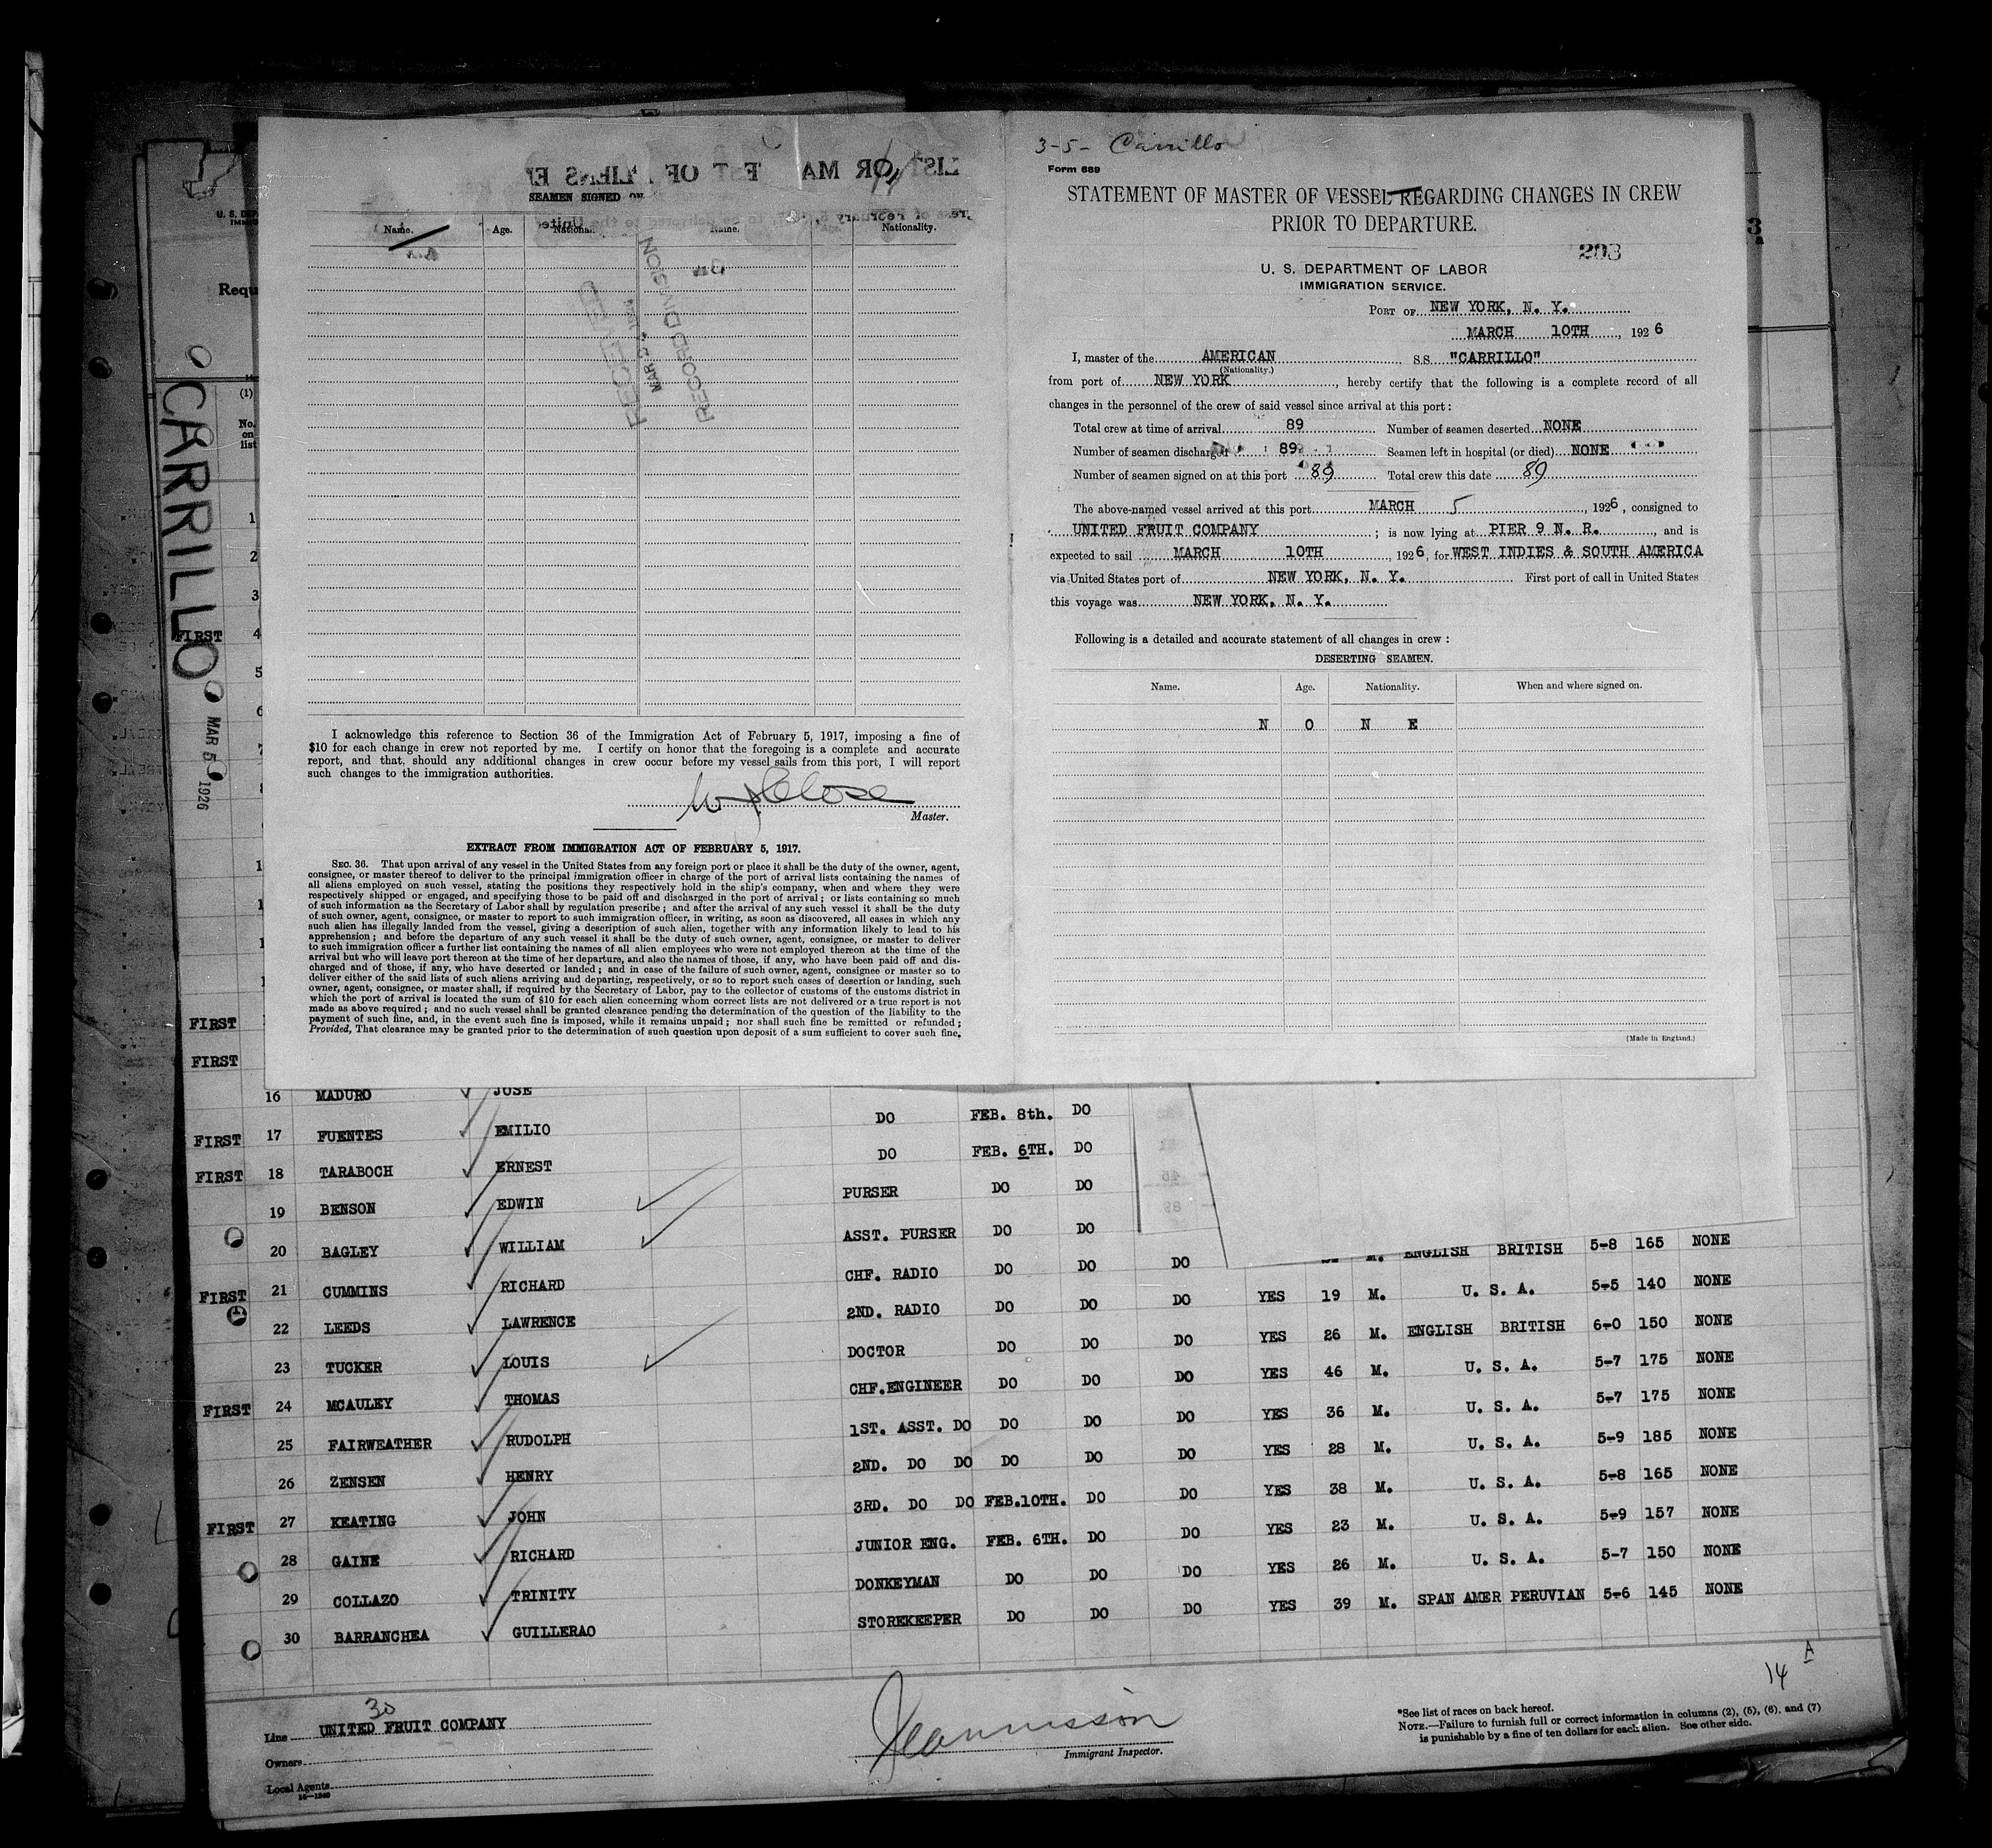 SEAMEN SIGNED ON
Name. Age. Name. Nationality.
RECEIVED
RECORD DIVISION
I acknowledge this reference to Section 36 of the Immigration Act of February 5, 1917, imposing a fine of
$10 for each change in crew not reported by me. I certify on honor that the foregoing is a complete and accurate
report, and that, should any additional changes in crew occur before my vessel sails from this port, I will report
such changes to the immigration authorities.
Close
Master.
EXTRACT FROM IMMIGRATION ACT OF FEBRUARY 5, 1917.
SEC. 36. That upon arrival of any vessel in the United States from any foreign port or place it shall be the duty of the owner, agent,
consignee, or master thereof to deliver to the principal immigration officer in charge of the port of arrival lists containing the names of
all aliens employed on such vessel, stating the positions they respectively hold in the ship's company, when and where they were
respectively shipped or engaged, and specifying those to be paid off and discharged in the port of arrival; or lists containing so much
of such information as the Secretary of Labor shall by regulation prescribe; and after the arrival of any such vessel it shall be the duty
of such owner, agent, consignee, or master to report to such immigration officer, in writing, as soon as discovered, all cases in which any
such alien has illegally landed from the vessel, giving a description of such alien, together with any information likely to lead to his
apprehension; and before the departure of any such vessel it shall be the duty of such owner, agent, consignee, or master to deliver
to such immigration officer a further list containing the names of all alien employees who were not employed thereon at the time of the
arrival but who will leave port thereon at the time of her departure, and also the names of those, if any, who have been paid off and dis-
charged and of those, if any, who have deserted or landed; and in case of the failure of such owner, agent, consignee or master so to
deliver either of the said lists of such aliens arriving and departing, respectively, or so to report such cases of desertion or landing, such
owner, agent, consignee, or master shall, if required by the Secretary of Labor, pay to the collector of customs of the customs district in
which the port of arrival is located the sum of $10 for each alien concerning whom correct lists are not delivered or a true report is not
made as above required; and no such vessel shall be granted clearance pending the determination of the question of the liability to the
payment of such fine, and, in the event such fine is imposed, while it remains unpaid; nor shall such fine be remitted or refunded;
Provided, That clearance may be granted prior to the determination of such question upon deposit of a sum sufficient to cover such fine.
3-5- Carrillo
Form 689
STATEMENT OF MASTER OF VESSEL REGARDING CHANGES IN CREW
PRIOR TO DEPARTURE.
203
U. S. DEPARTMENT OF LABOR
IMMIGRATION SERVICE.
PORT OF NEW YORK, N. Y.
MARCH 10TH, 1926
I, master of the AMERICAN S.S. "CARRILLO"
(Nationality.)
from port of NEW YORK, hereby certify that the following is a complete record of all
changes in the personnel of the crew of said vessel since arrival at this port:
Total crew at time of arrival 89 Number of seamen deserted NONE
Number of seamen discharged 89 Seamen left in hospital (or died) NONE
Number of seamen signed on at this port 89 Total crew this date 89
The above-named vessel arrived at this port MARCH 5, 1926, consigned to
UNITED FRUIT COMPANY; is now lying at PIER 9 N. R., and is
expected to sail MARCH 10TH, 1926, for WEST INDIES & SOUTH AMERICA
via United States port of NEW YORK, N. Y. First port of call in United States
this voyage was NEW YORK, N. Y.
Following is a detailed and accurate statement of all changes in crew:
DESERTING SEAMEN.
Name. Age. Nationality. When and where signed on.
N O N E
(Made in England.)
CARRILLO
MAR 5 1926
(1)
No.
on
list
1
2
3
FIRST 4
5
6
7
FIRST
FIRST
16 MADURO JOSE
FIRST 17 FUENTES EMILIO DO FEB. 8th. DO
FIRST 18 TARABOCH ERNEST DO FEB. 6TH. DO
19 BENSON EDWIN PURSER DO DO
20 BAGLEY WILLIAM ASST. PURSER DO DO
FIRST 21 CUMMINS RICHARD CHF. RADIO DO DO DO M. ENGLISH BRITISH 5-8 165 NONE
22 LEEDS LAWRENCE 2ND. RADIO DO DO DO YES 19 M. U. S. A. 5-5 140 NONE
23 TUCKER LOUIS DOCTOR DO DO DO YES 26 M. ENGLISH BRITISH 6-0 150 NONE
FIRST 24 MCAULEY THOMAS CHF.ENGINEER DO DO DO YES 46 M. U. S. A. 5-7 175 NONE
25 FAIRWEATHER RUDOLPH 1ST. ASST. DO DO DO DO YES 36 M. U. S. A. 5-7 175 NONE
26 ZENSEN HENRY 2ND. DO DO DO DO DO YES 28 M. U. S. A. 5-9 185 NONE
FIRST 27 KEATING JOHN 3RD. DO DO FEB.10TH. DO DO YES 38 M. U. S. A. 5-8 165 NONE
28 GAINE RICHARD JUNIOR ENG. FEB. 6TH. DO DO YES 23 M. U. S. A. 5-9 157 NONE
29 COLLAZO TRINITY DONKEYMAN DO DO DO YES 26 M. U. S. A. 5-7 150 NONE
30 BARRANCHEA GUILLERAO STOREKEEPER DO DO DO YES 39 M. SPAN AMER PERUVIAN 5-6 145 NONE
14 A
30
Line UNITED FRUIT COMPANY
Owners
Local Agents
Immigrant Inspector.
*See list of races on back hereof.
NOTE.—Failure to furnish full or correct information in columns (2), (5), (6), and (7)
is punishable by a fine of ten dollars for each alien. See other side.